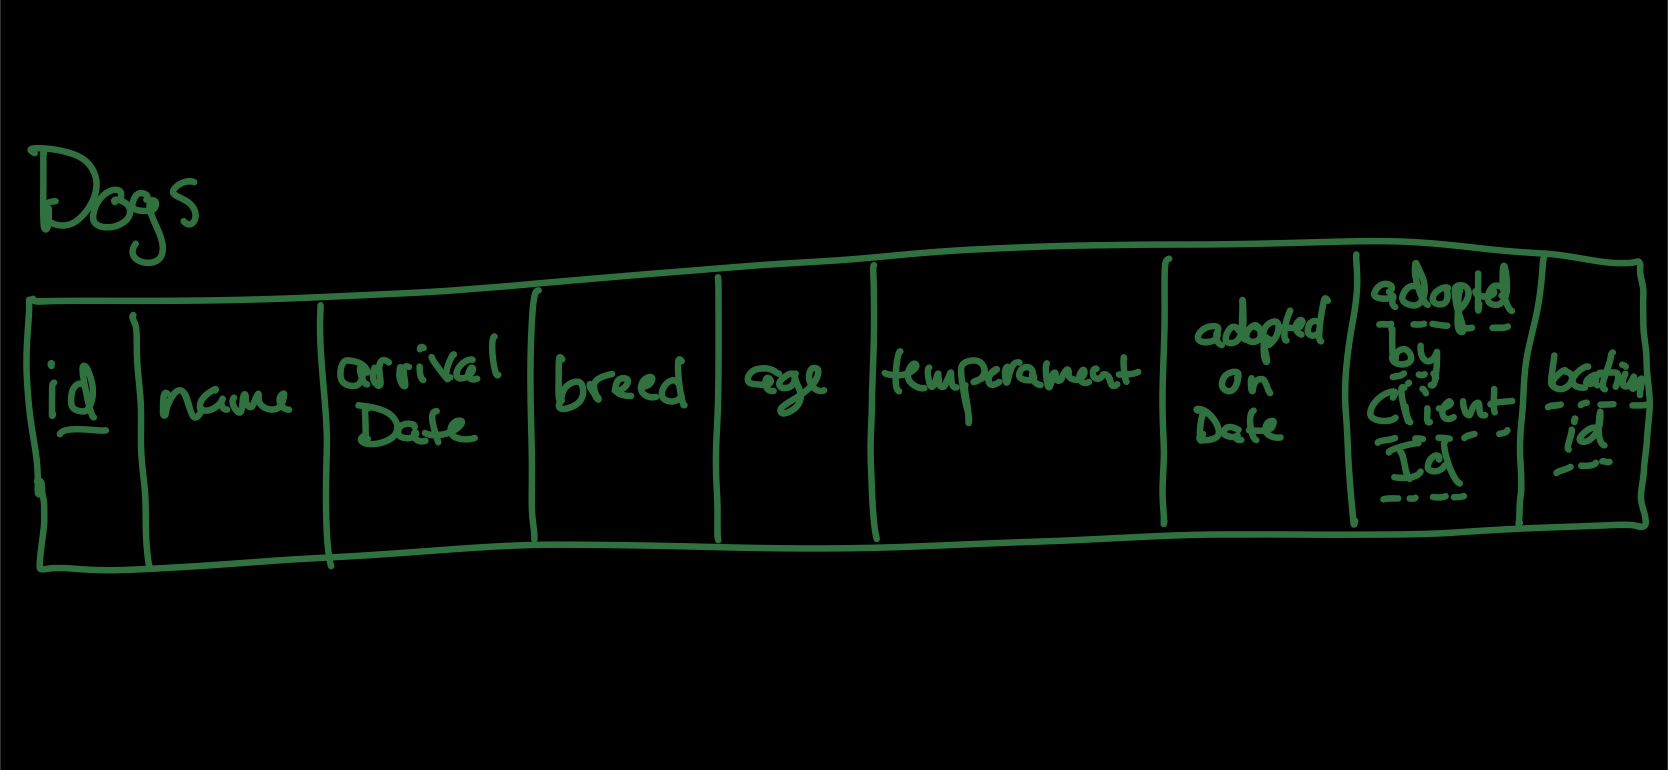 Dogs
id
name
arrival
Date
breed
age
temperament
adopted
on
Date
adopted
by
Client
Id
location
id